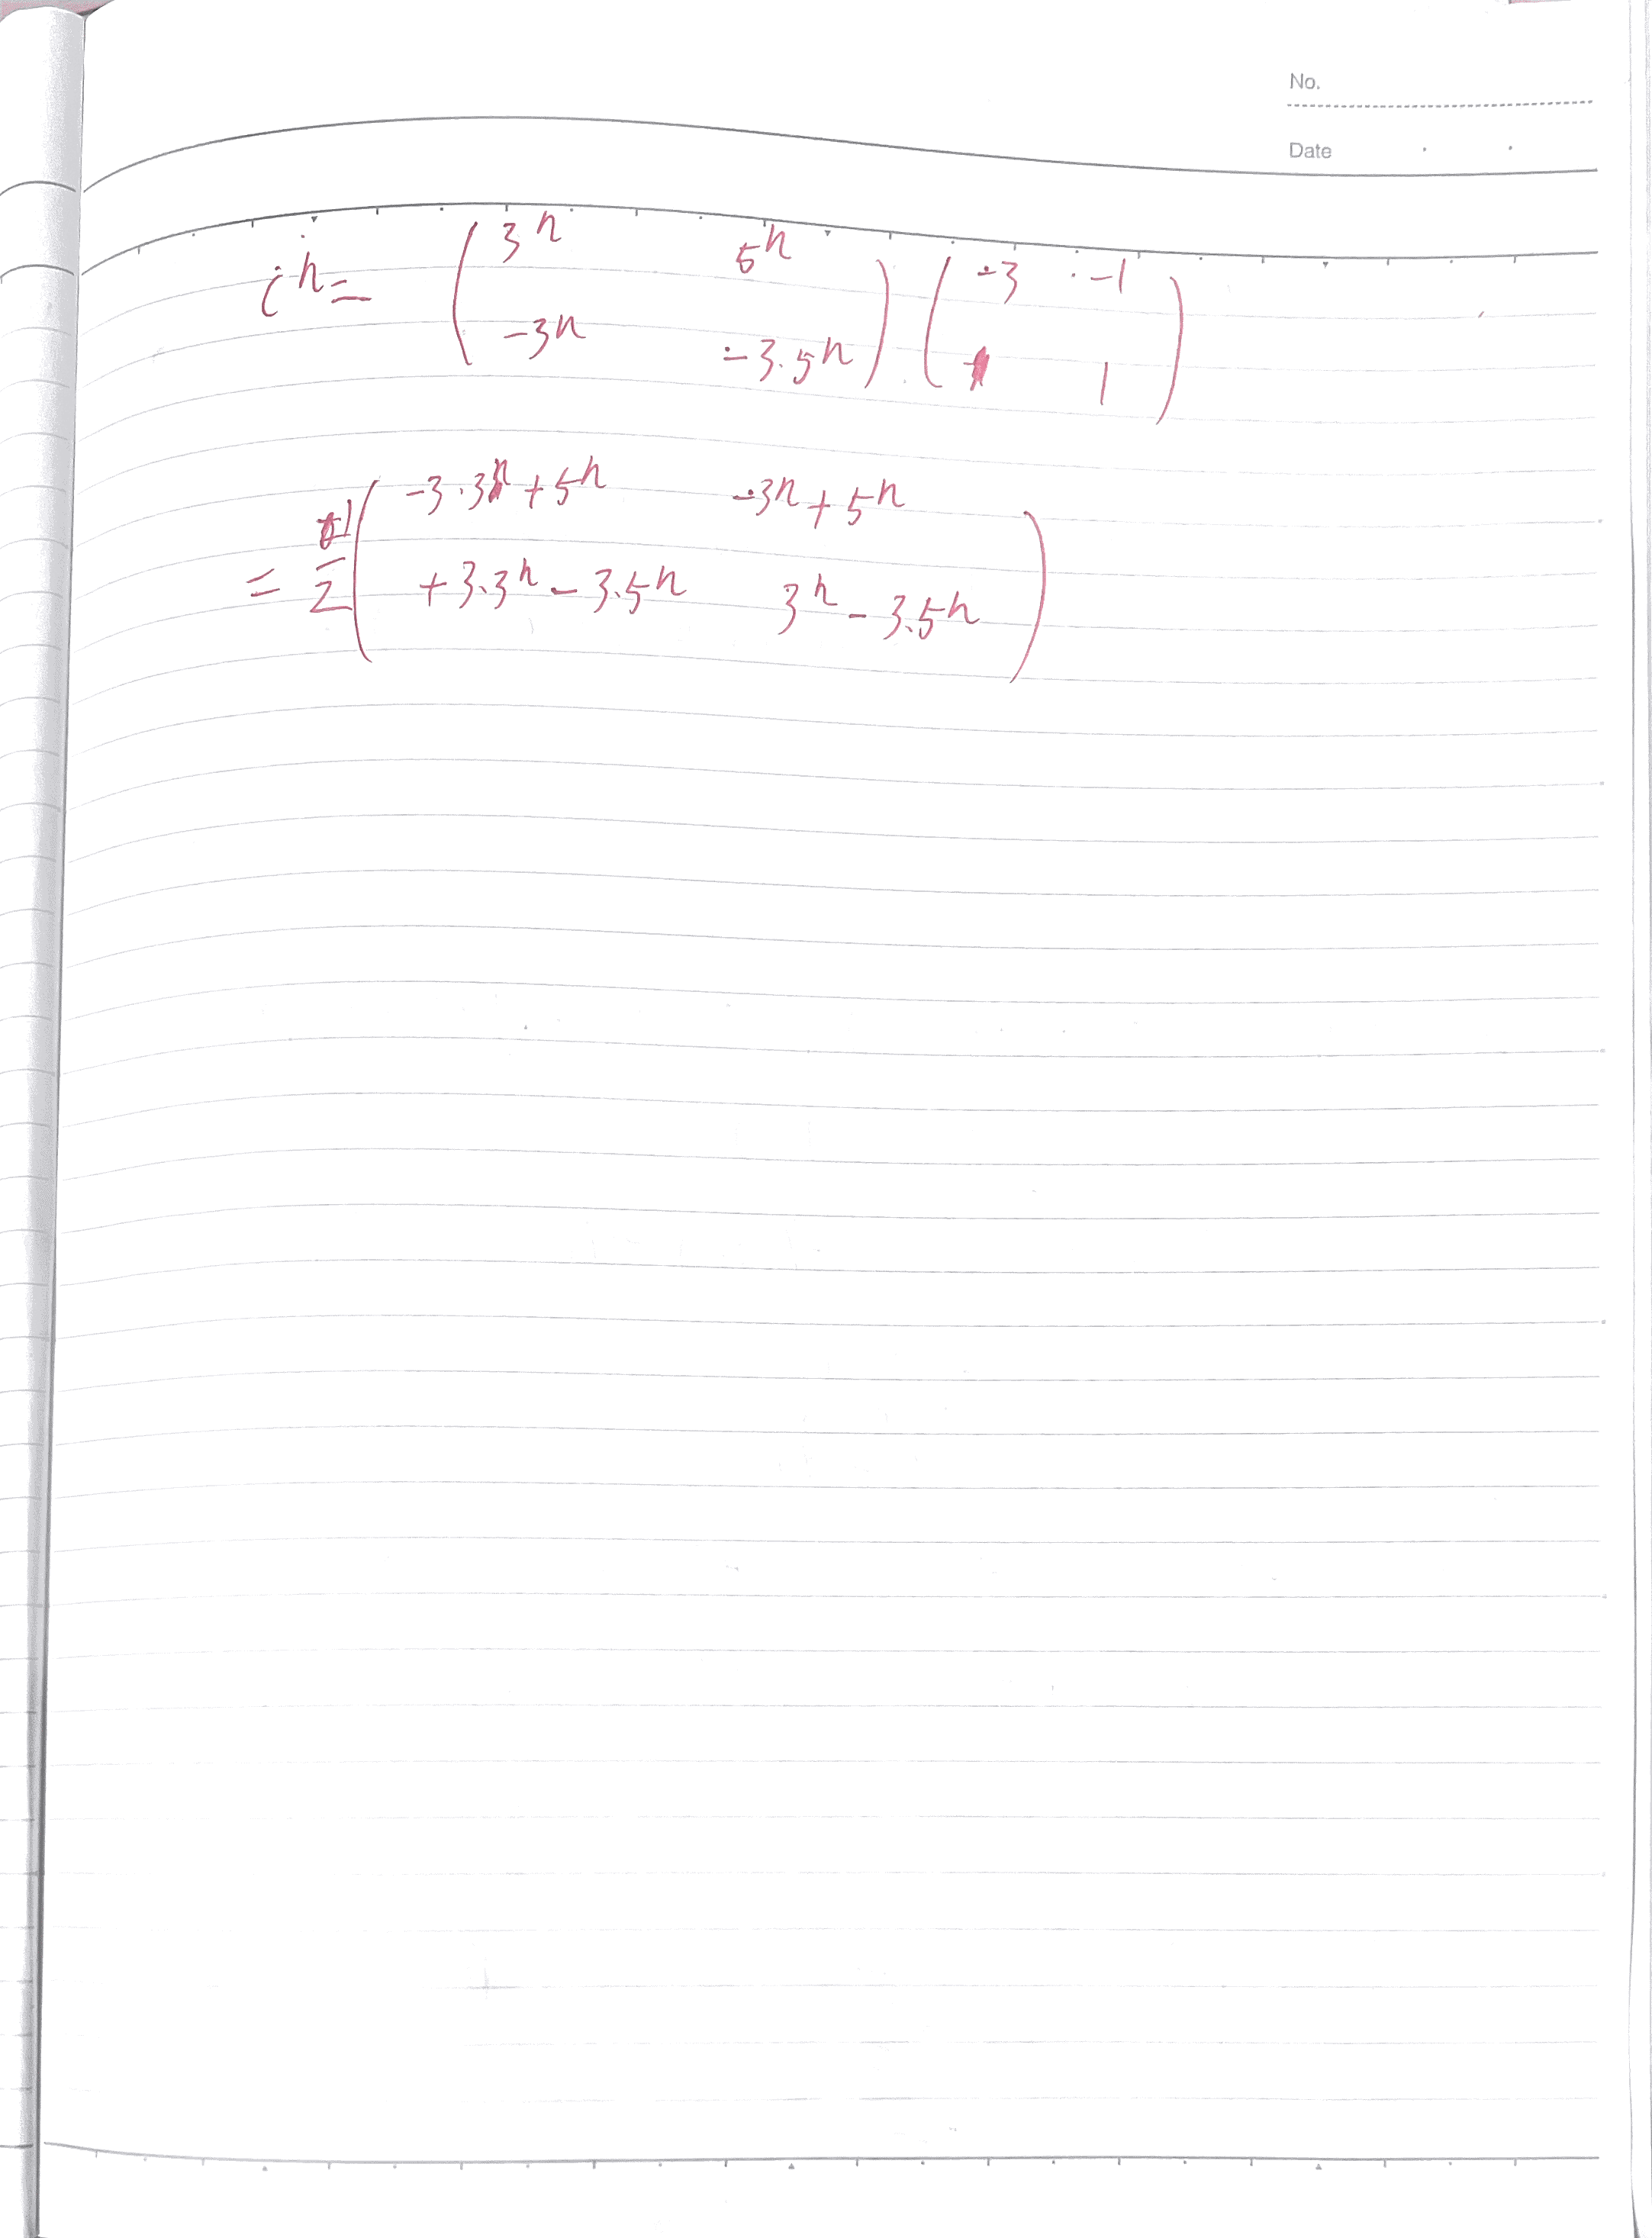 No.
Date
iⁿ = ( 3ⁿ 5ⁿ ) ( -3 -1 )
( -3ⁿ -3.5ⁿ ) ( 1 1 )
( -3.3ⁿ + 5ⁿ -3ⁿ + 5ⁿ )
= -1/2 ( +3.3ⁿ - 3.5ⁿ 3ⁿ - 3.5ⁿ )